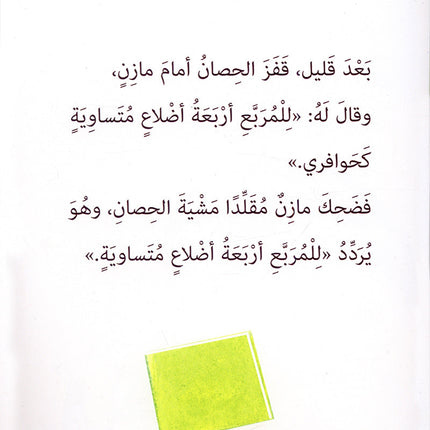 بَعْدَ قَليل، قَفَزَ الحِصانُ أمامَ مازِنٍ،
وقالَ لَهُ: «لِلْمُرَبَّعِ أرْبَعَةُ أضْلاعٍ مُتَساوِيَةٍ
كَحَوافري.»
فَضَحِكَ مازِنٌ مُقَلِّدًا مَشْيَةَ الحِصانِ، وهُوَ
يُرَدِّدُ «لِلْمُرَبَّعِ أرْبَعَةُ أضْلاعٍ مُتَساويَةٍ.»